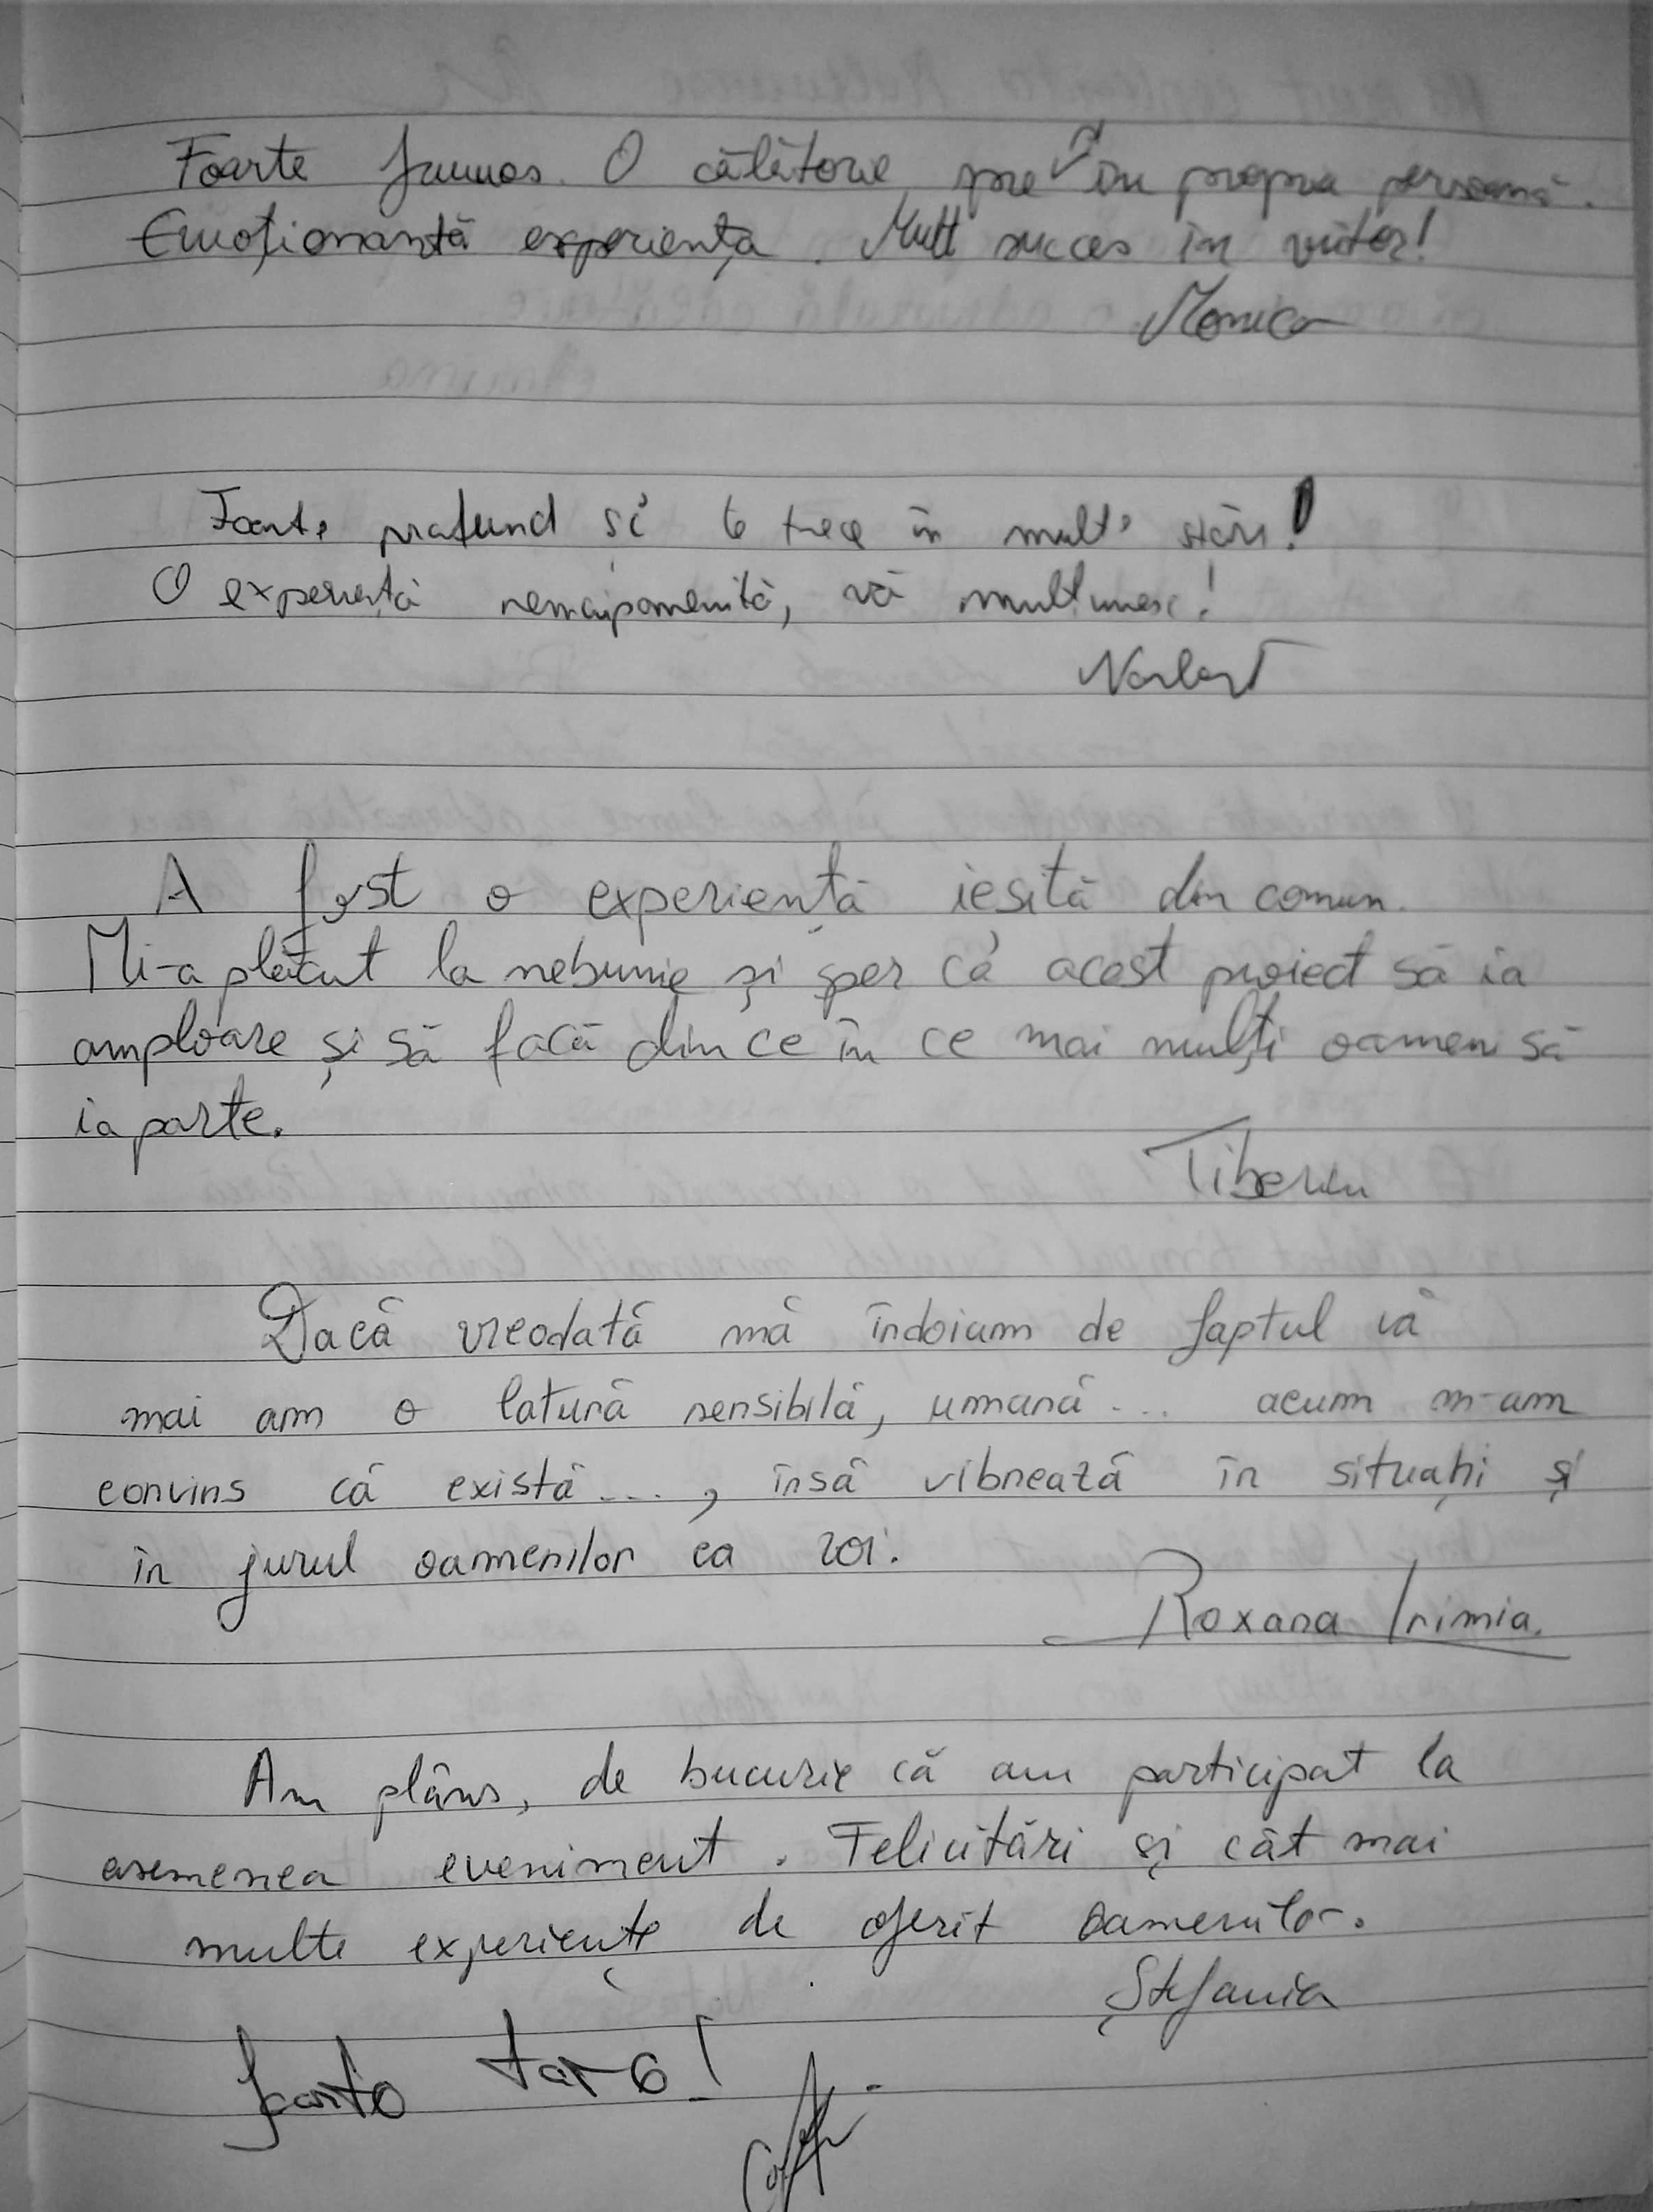 Foarte frumos. O călătorie spre și în propria persoană.
Emoționantă experiența. Mult succes în viitor!
Monica
Foarte profund și te trece în multe stări!
O experiență nemaipomenită, vă mulțumesc!
Norbert
A fost o experiență ieșită din comun.
Mi-a plăcut la nebunie și sper că acest proiect să ia
amploare și să facă din ce în ce mai mulți oameni să
ia parte.
Tiberiu
Dacă vreodată mă îndoiam de faptul că
mai am o latură sensibilă, umană... acum m-am
convins că există..., însă vibrează în situații și
în jurul oamenilor ca voi.
Roxana Irimia.
Am plâns, de bucurie că am participat la
asemenea eveniment. Felicitări și cât mai
multe experiențe de oferit oamenilor.
Ștefania
foarte tare!